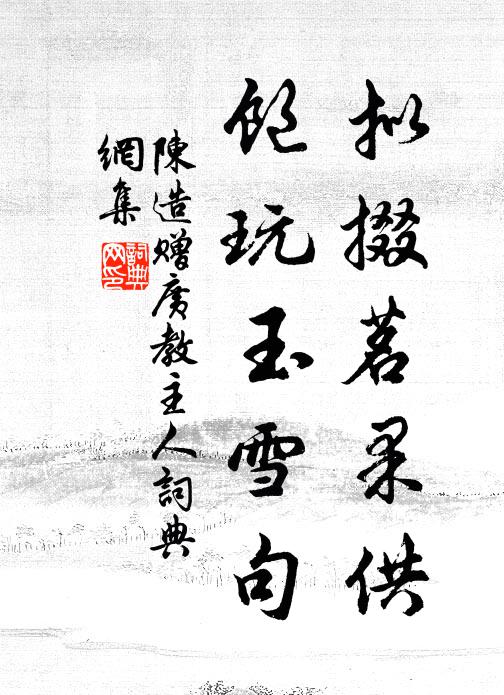 拟掇茗果供
饱玩玉雪句
陳造赠广教主人詞典
網集
詞典网印